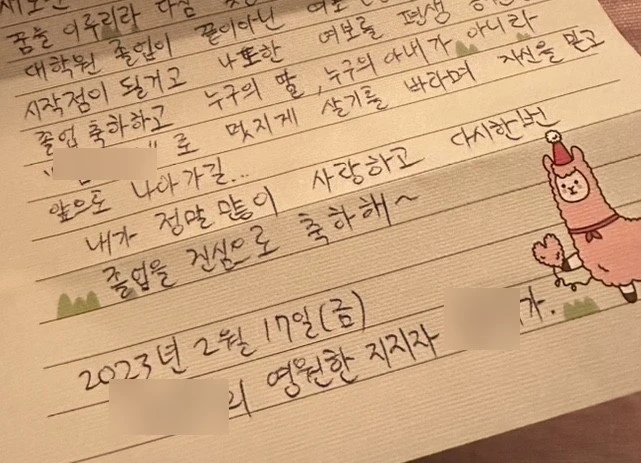 꿈을 이루리라 다짐
대학원 졸업이 끝이아닌
시작점이 될거고 나또한 여보를 평생
졸업 축하하고 누구의 딸, 누구의 아내가 아니라
"로 멋지게 살기를 바라며 자신을 믿고
앞으로 나아가길...
내가 정말 많이 사랑하고 다시한번
졸업을 진심으로 축하해~
2023년 2월 17일(금)
의 영원한 지지자 가.